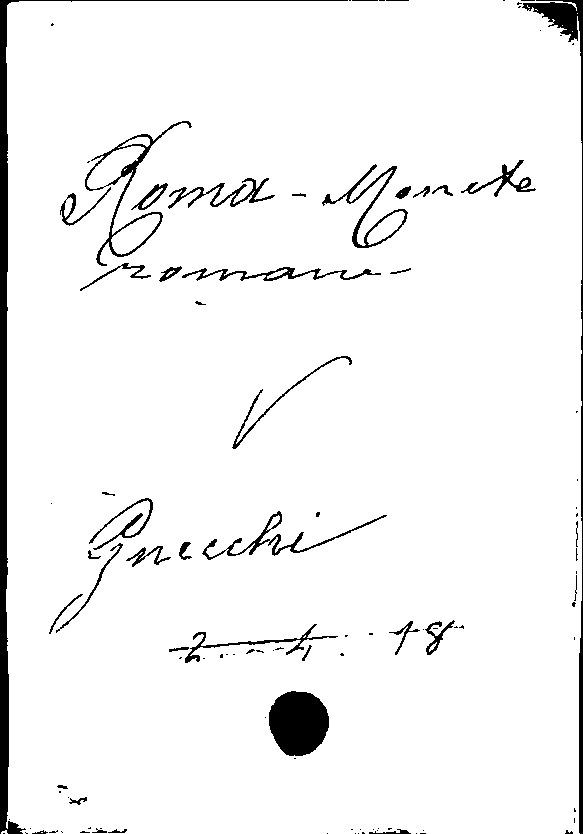 Roma - Monete
romane
V
Gnecchi
2 - 4. 18